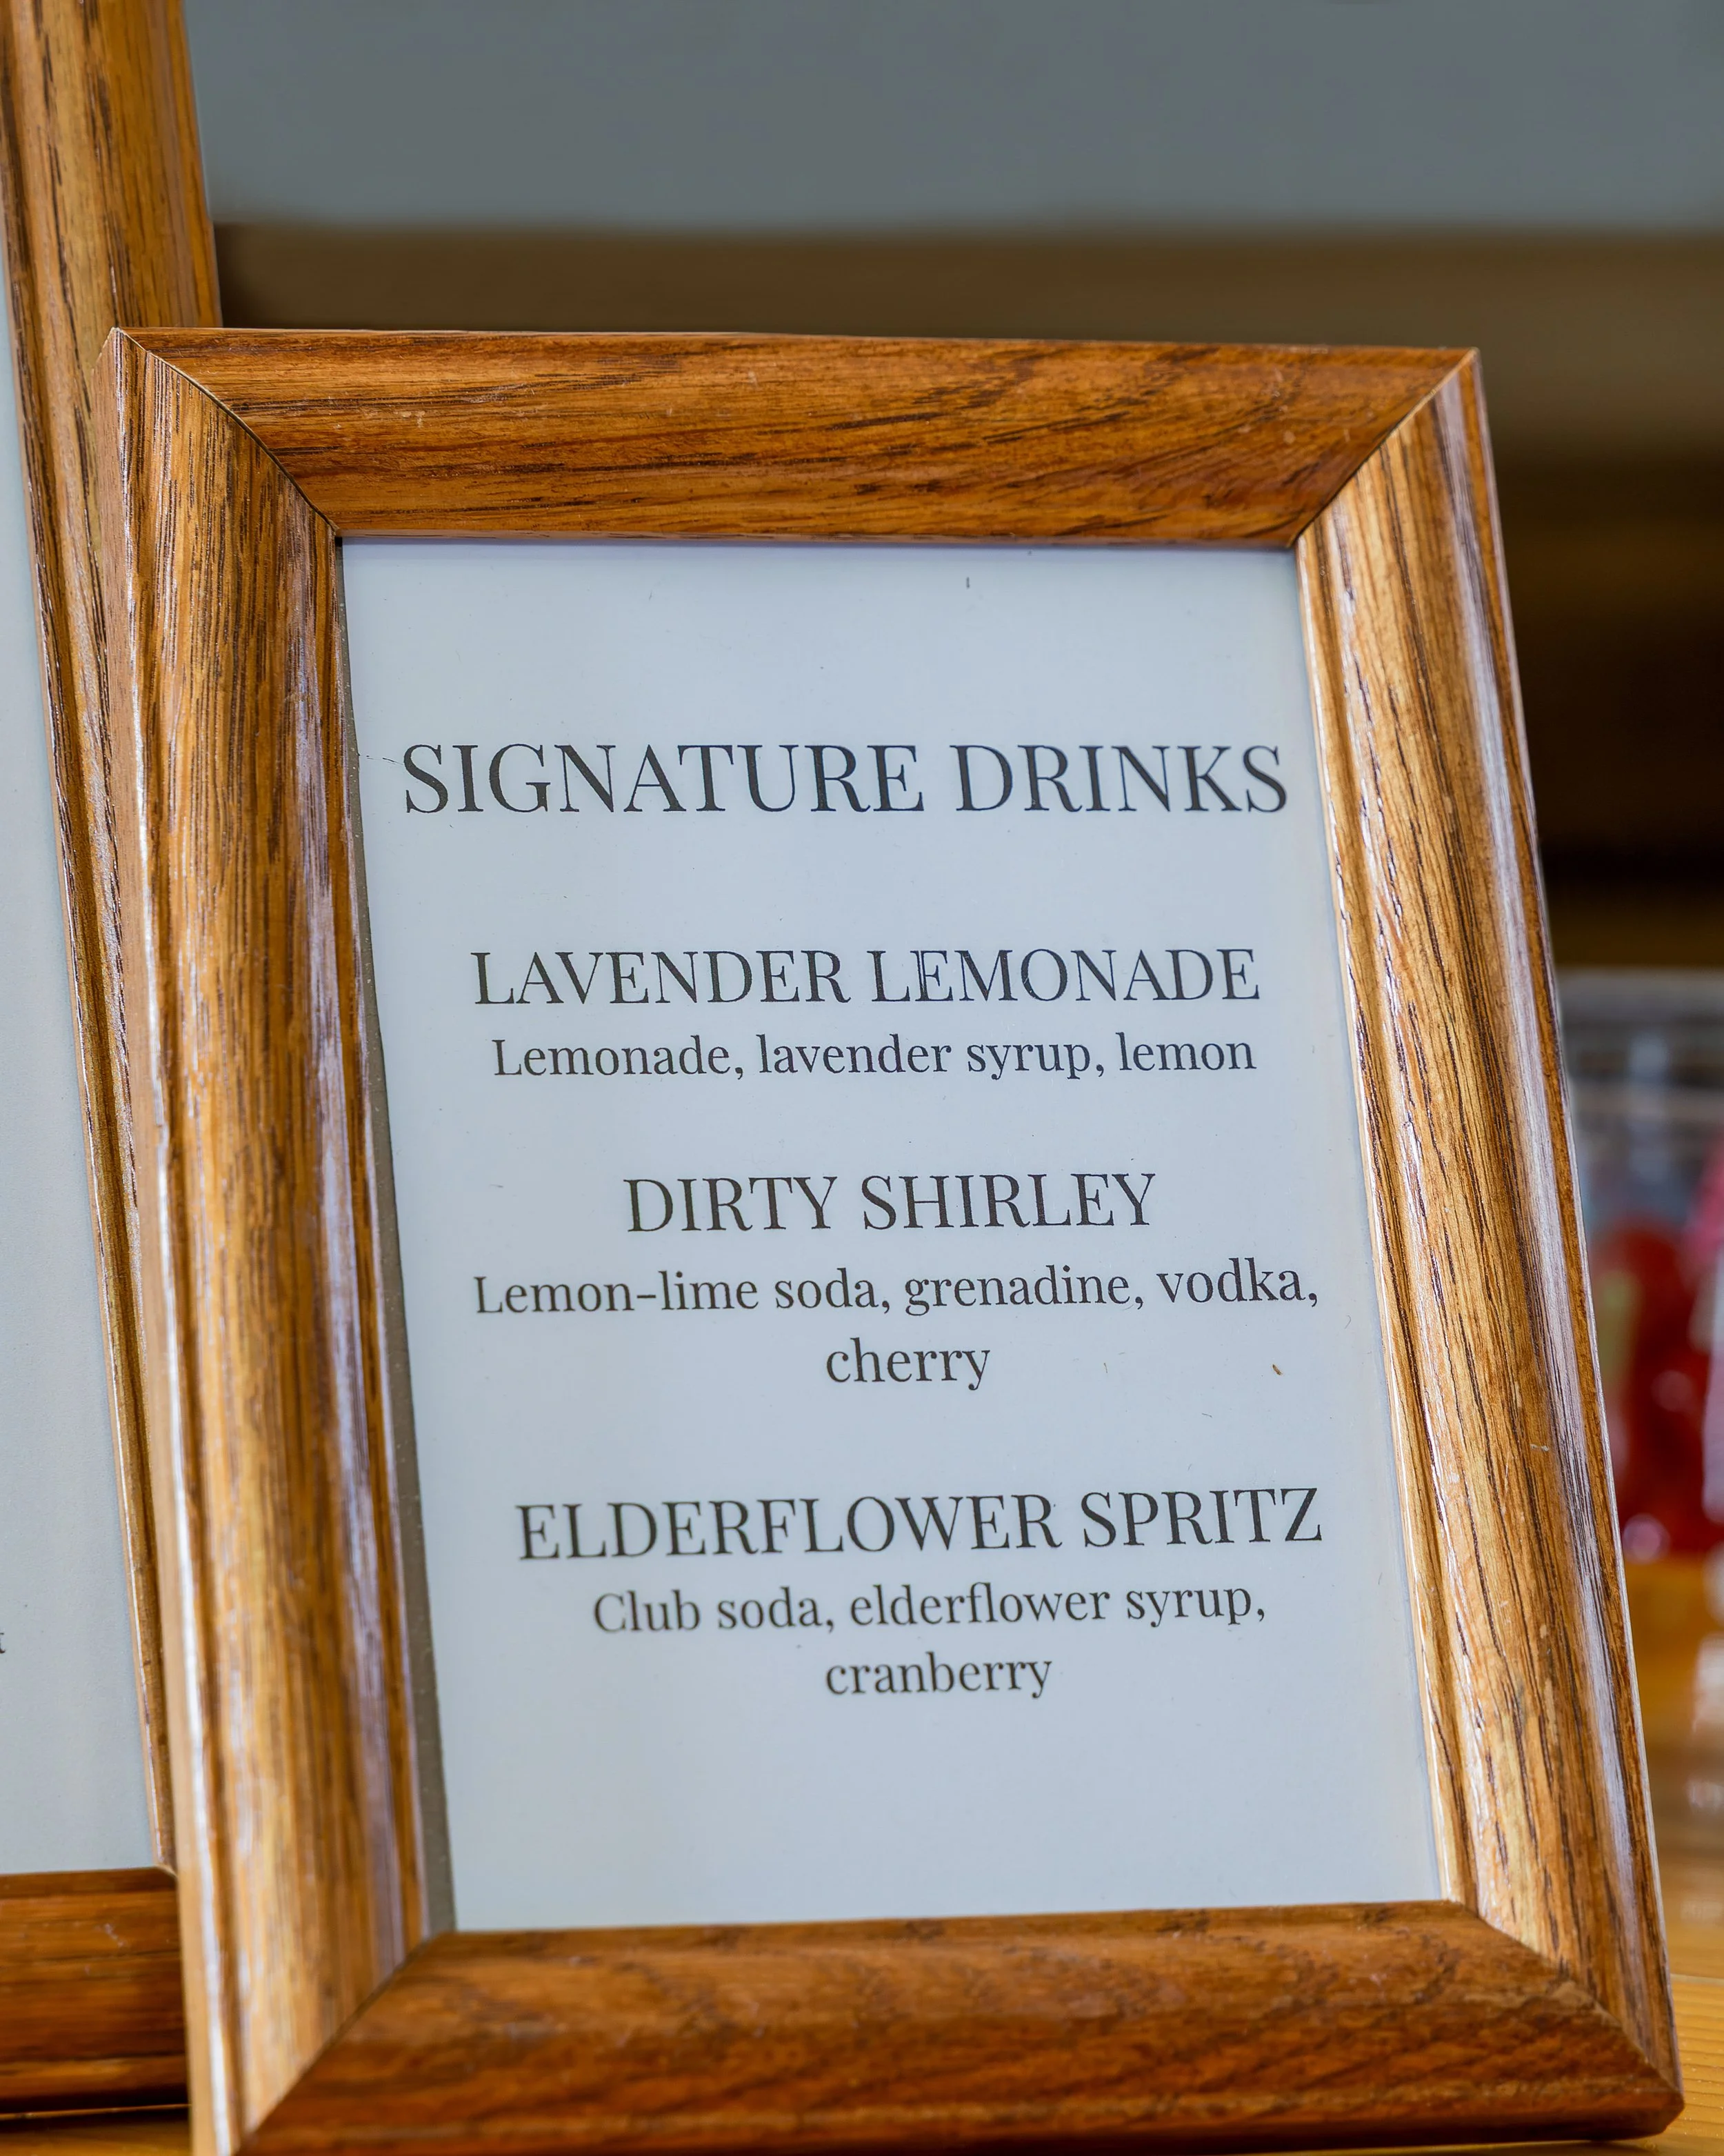 SIGNATURE DRINKS
LAVENDER LEMONADE
Lemonade, lavender syrup, lemon
DIRTY SHIRLEY
Lemon-lime soda, grenadine, vodka,
cherry
ELDERFLOWER SPRITZ
Club soda, elderflower syrup,
cranberry